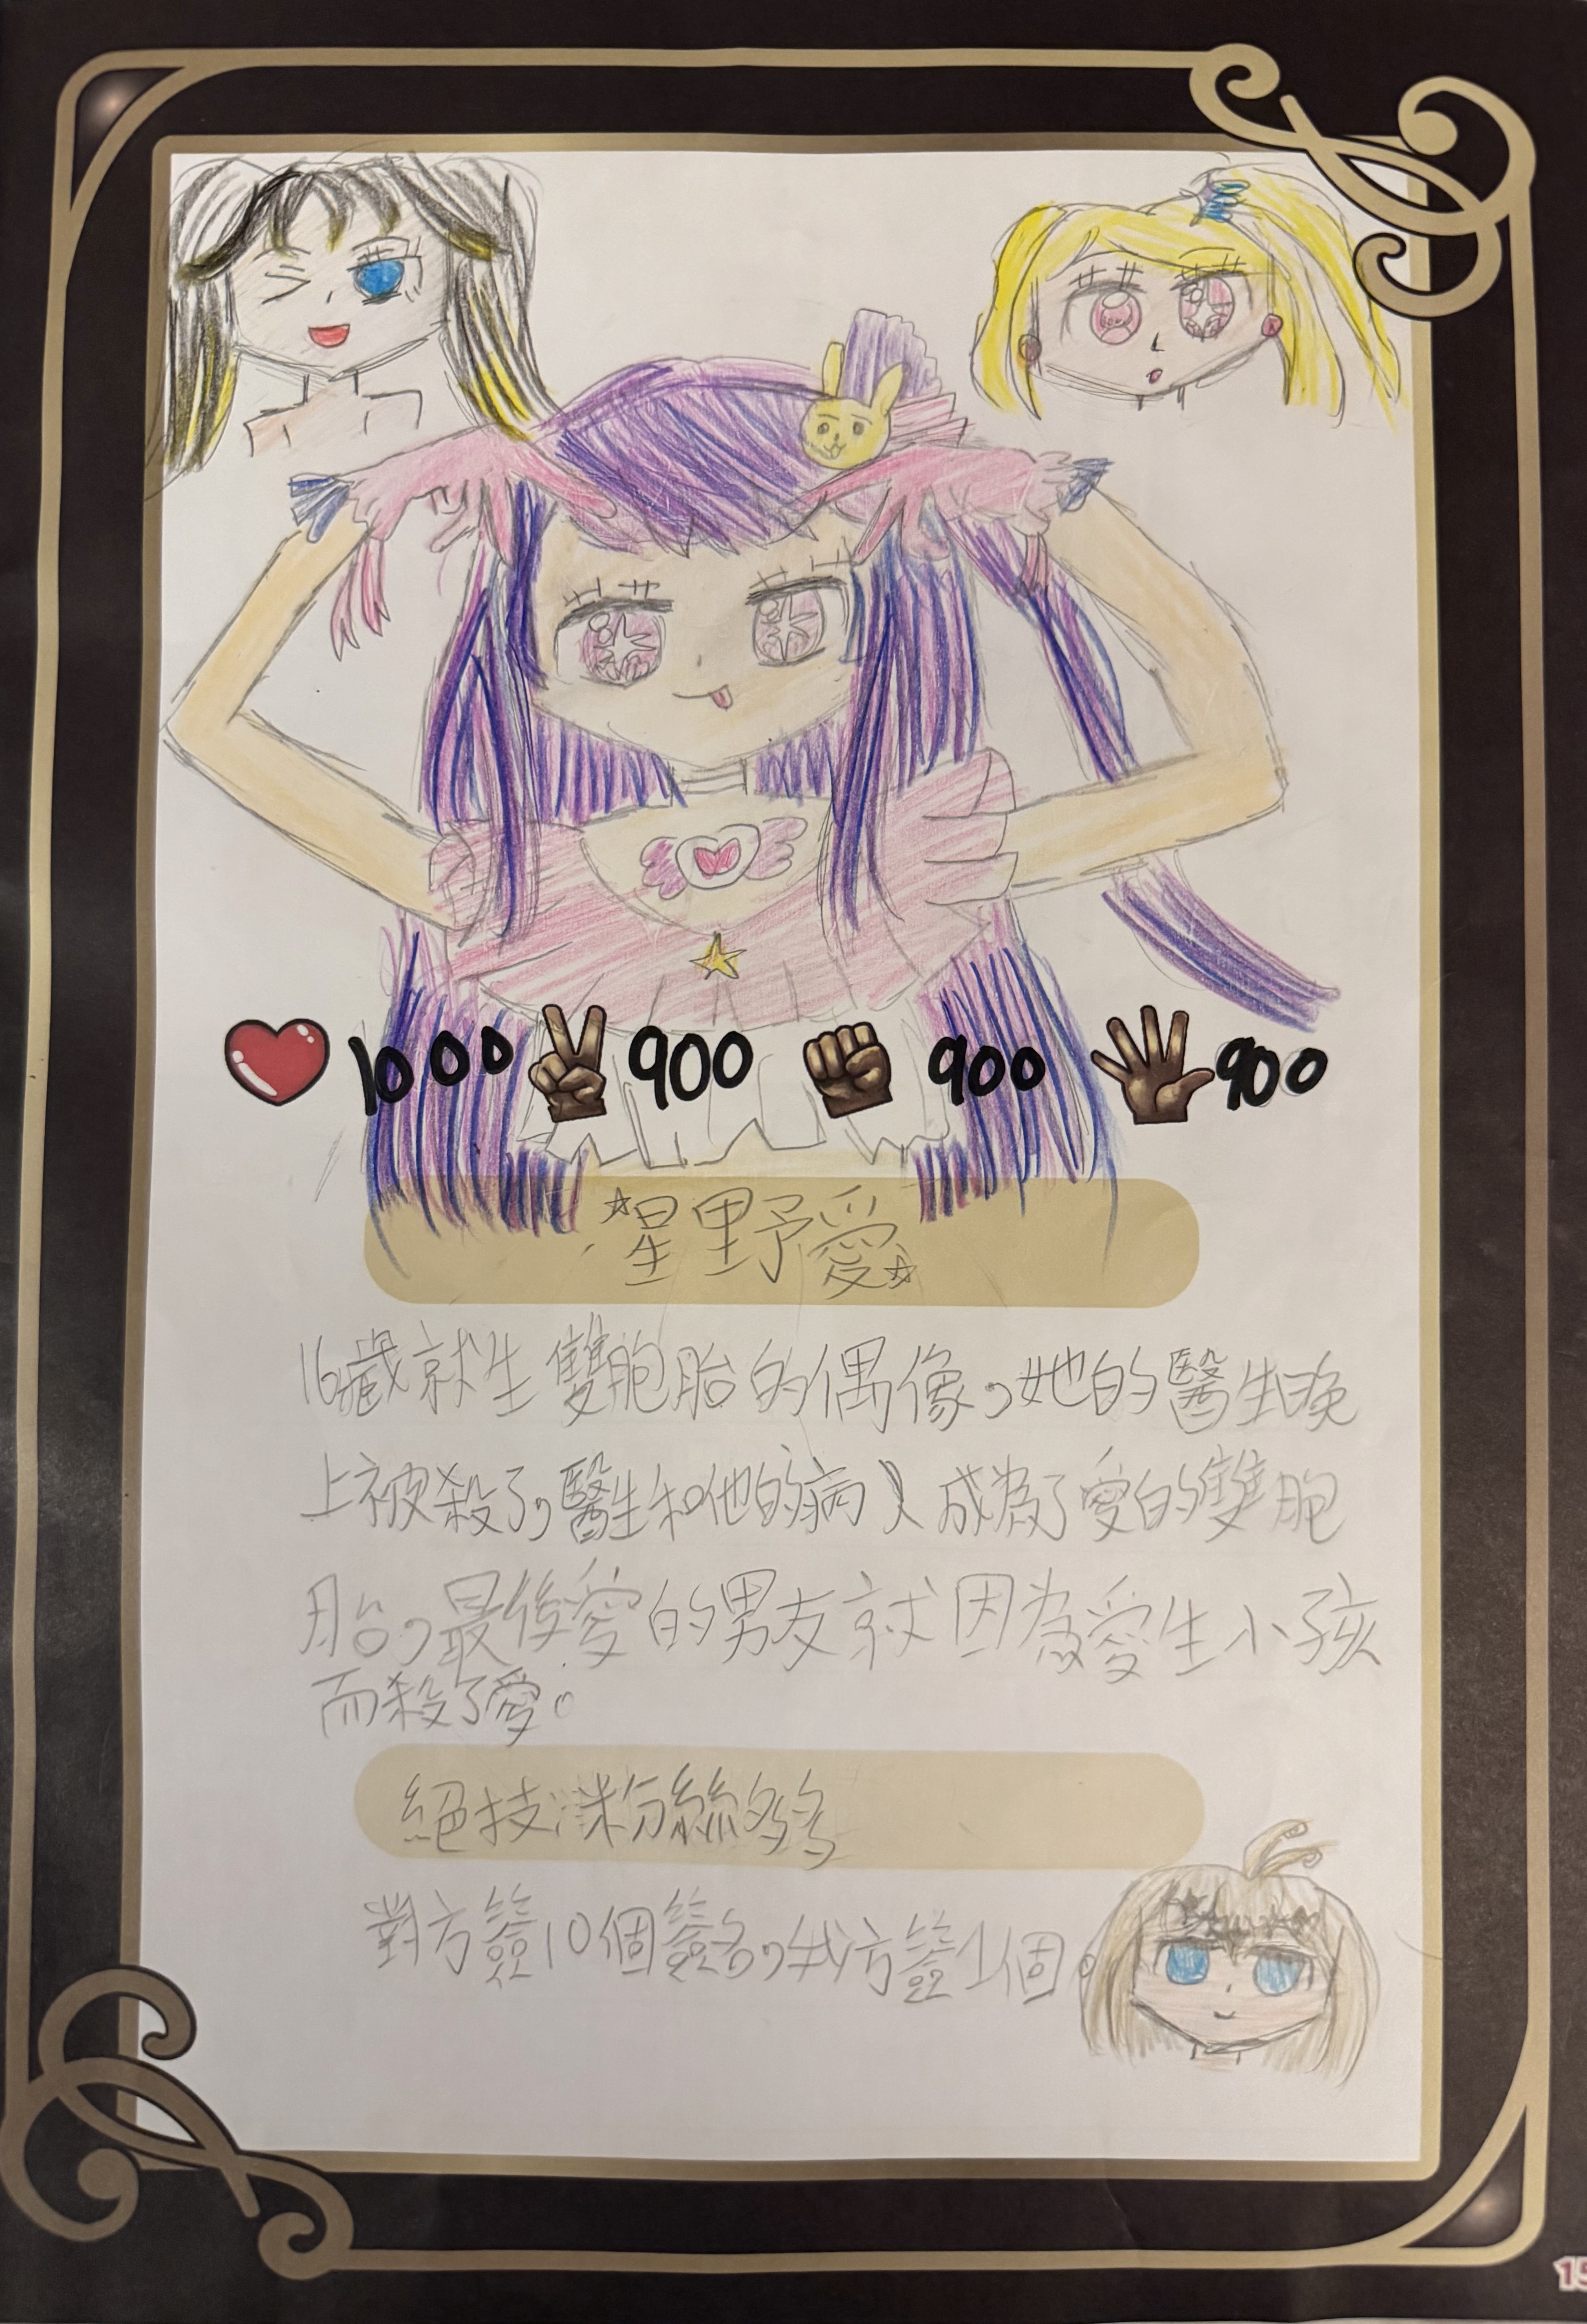 1000 900 900 900
星野愛
16歲就生雙胞胎的偶像,她的醫生晚
上被殺了,醫生和他的病人成為了愛的雙胞
胎,最後愛的男友就因為愛生小孩
而殺了愛。
絕技:粉絲多多
對方簽10個簽名,我方簽1個。
15